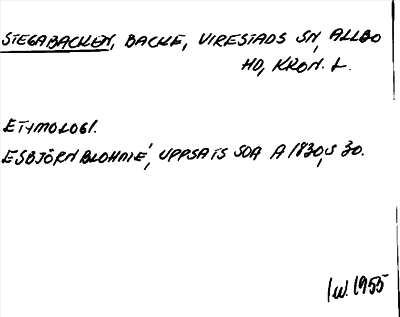 STEGABACKEN, BACKE, VIRESTADS SN, ALLBO
HD, KRON. L.
ETYMOLOGI.
ESBJÖRN BLOHMÉ, UPPSATS SOA A 1830, S 30.
IW. 1955